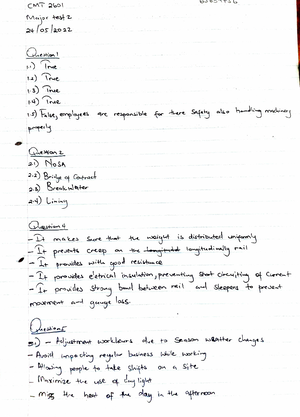 CMT 2601
Major test 2
24/05/2022
Question 1
1.1) True
1.2) True
1.3) True
1.4) True
1.5) False, employees are responsible for there safety also handling machinery
properly
Question 2
2.1) NOSA
2.2) Bridge of Contract
2.3) Breakwater
2.4) Lining
Question 4
- It makes sure that the weight is distributed uniformly
- It prevents creep on the longitudinally rail
- It provides with good resistance
- It provides eletrical insulation, preventing short circuiting of current
- It provides strong bond between rail and sleepers to prevent
movement and gauge loss.
Question 5
5.1) - Adjustment workhours due to season weather changes
- Avoid impacting regular business while working
- Allowing people to take shifts on a site
- Maximize the use of day light
- Miss the heat of the day in the afternoon